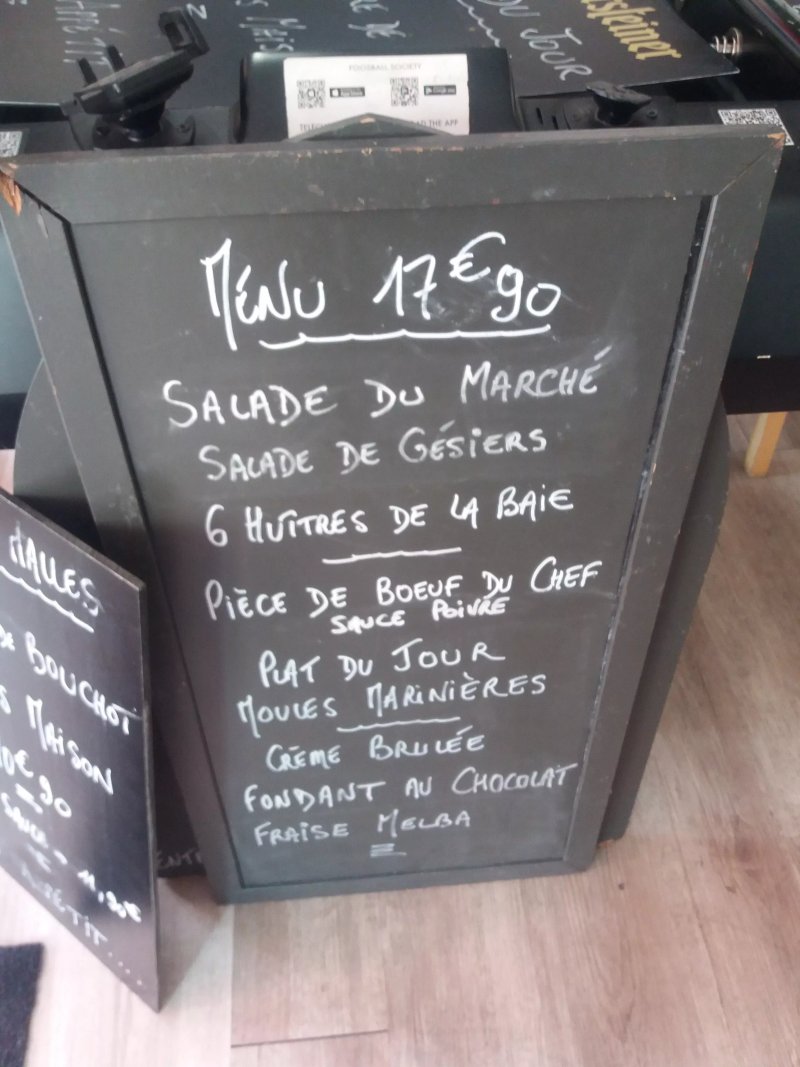 DU JOUR
FOOTBALL SOCIETY
THE APP
MÉNU 17€90
SALADE DU MARCHÉ
SALADE DE GÉSIERS
6 HUÎTRES DE LA BAIE
PIÈCE DE BOEUF DU CHEF
SAUCE POIVRE
PLAT DU JOUR
MOULES MARINIÈRES
CRÈME BRULÉE
FONDANT AU CHOCOLAT
FRAISE MELBA
HALLES
DE BOUCHOT
MAISON
€90
SAUCE
11,90€